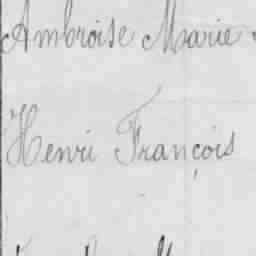 Ambroise Marie
Henri François